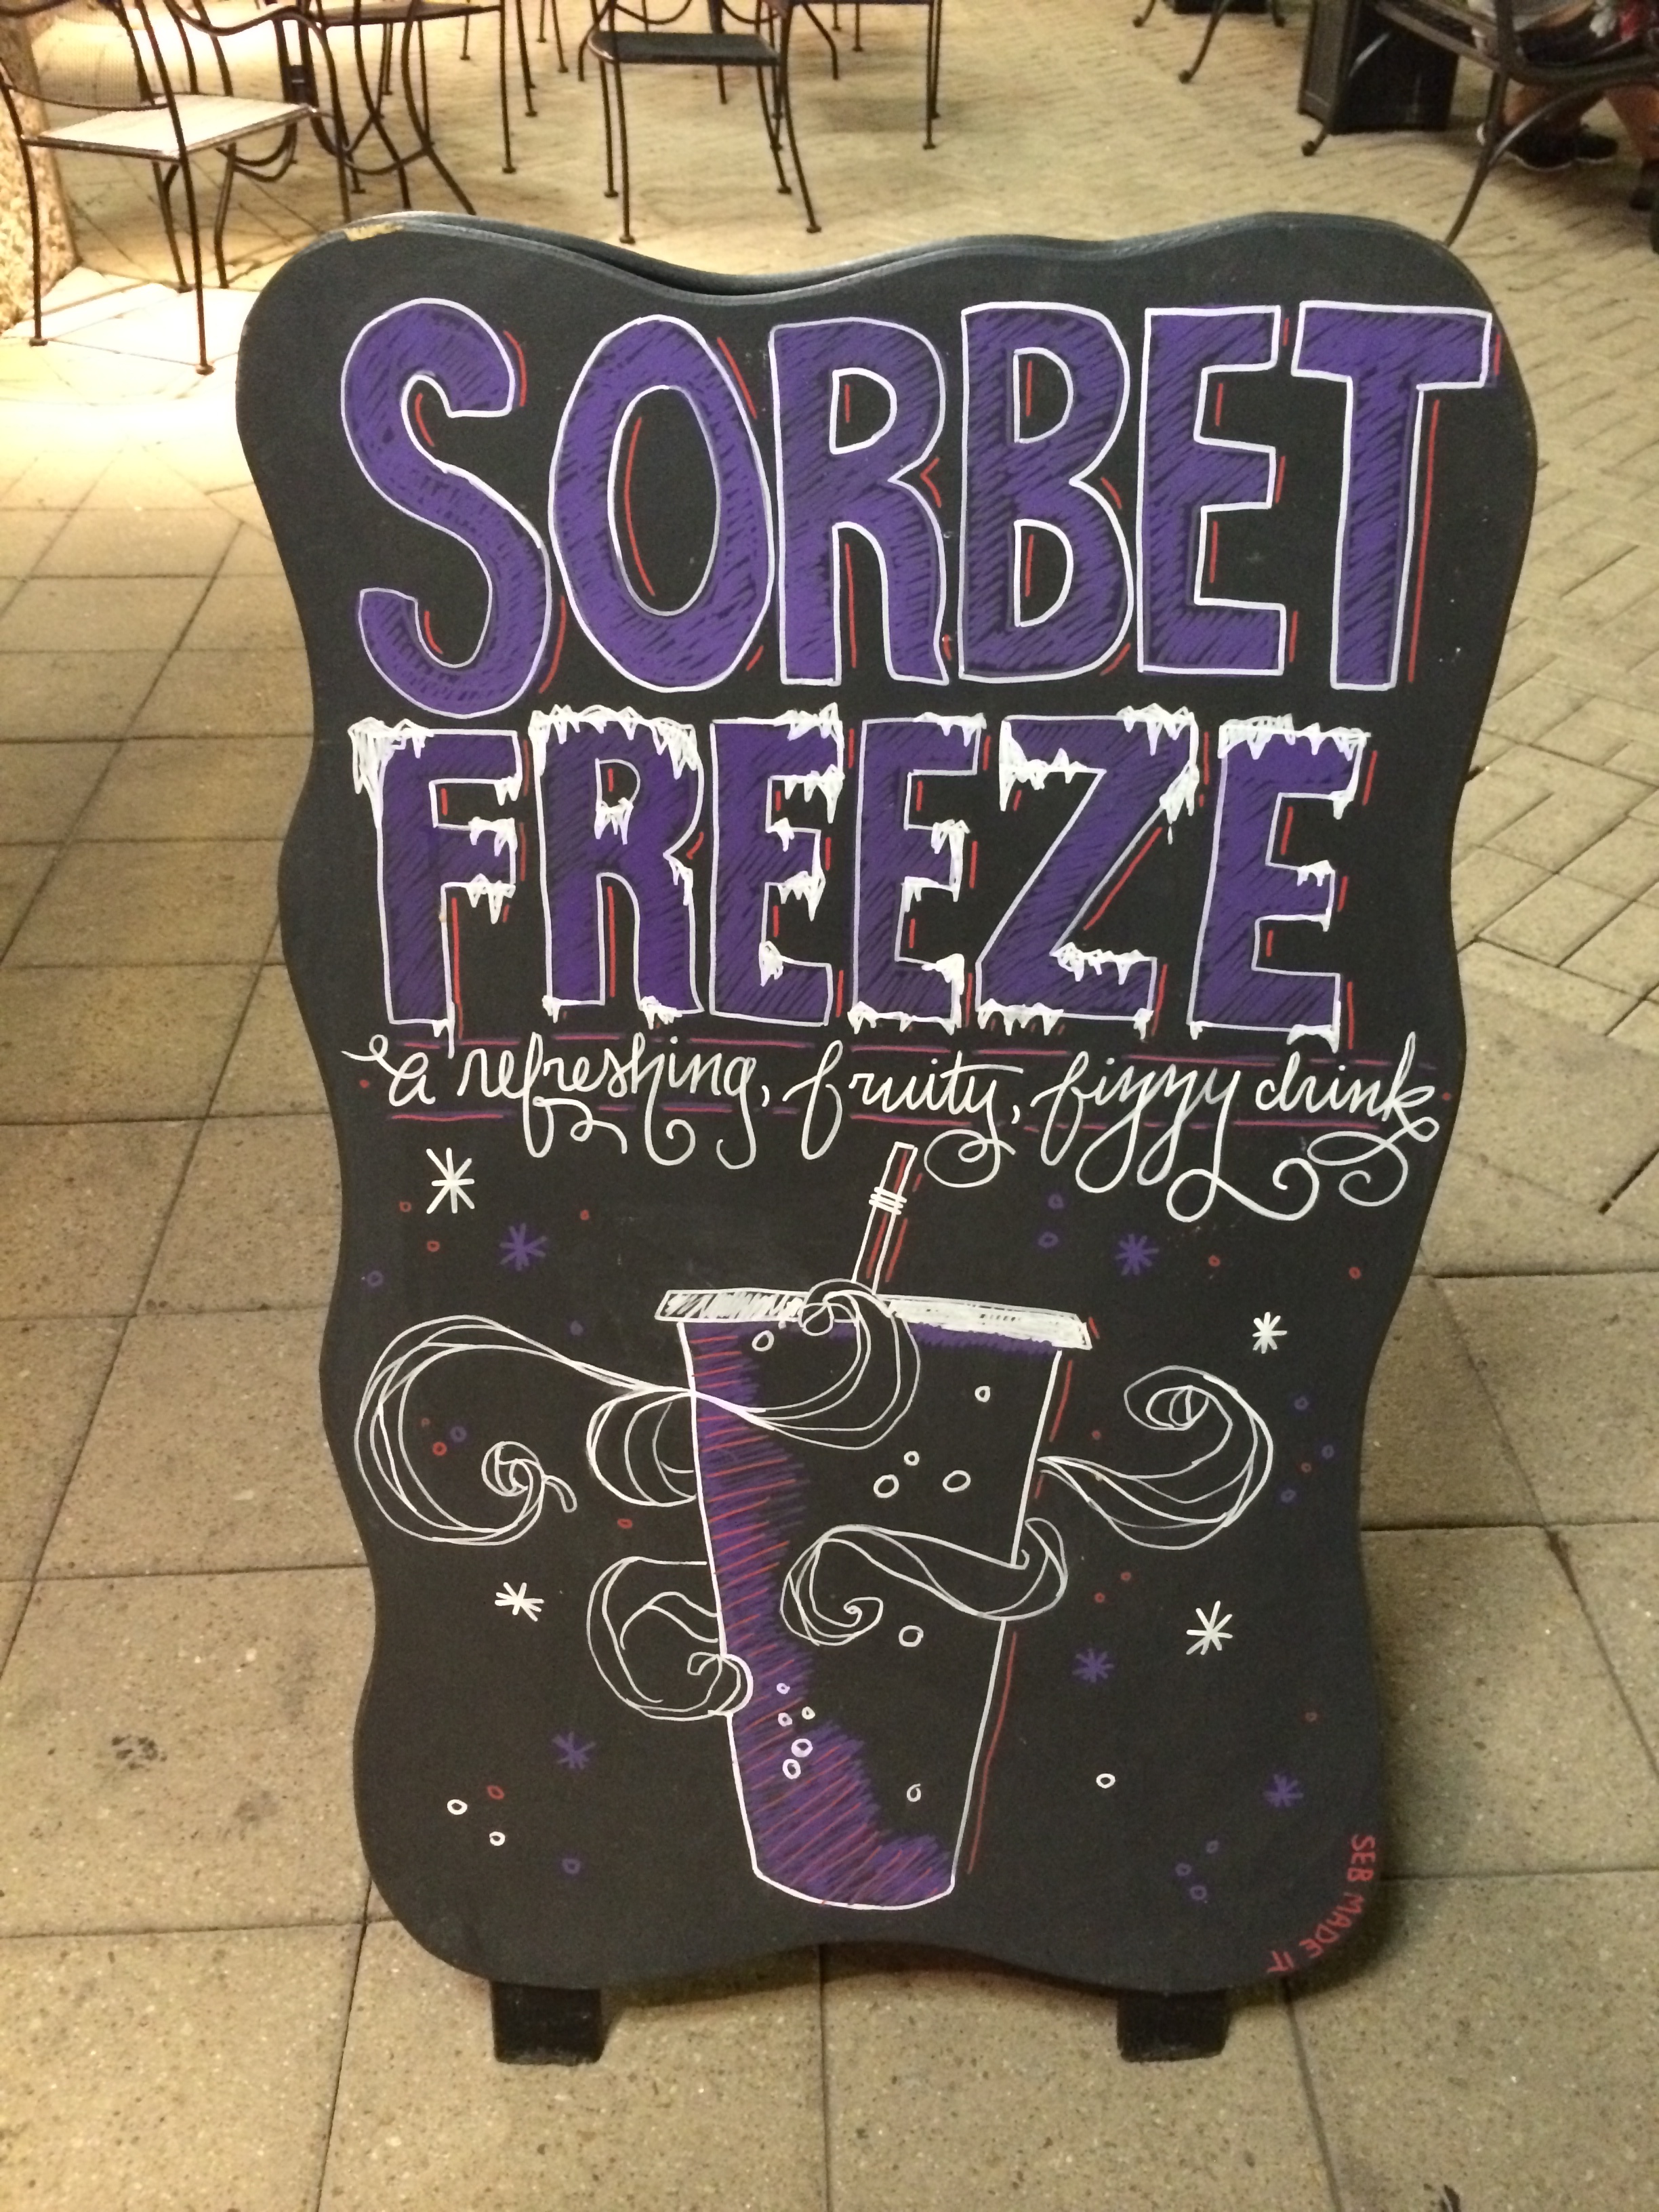 SORBET
FREEZE
a refreshing, fruity, fizzy drink
SEB MADE IT